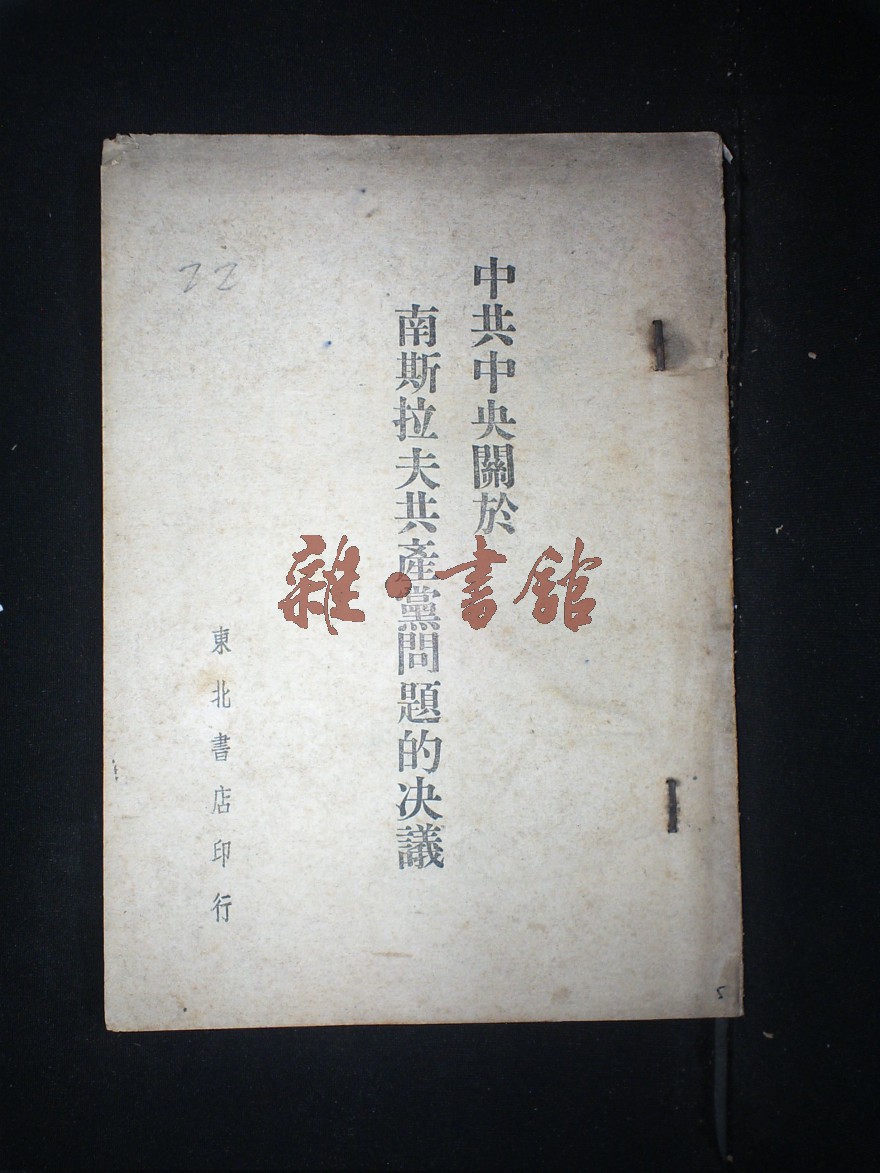 中共中央關於
南斯拉夫共產黨問題的决議
東北書店印行
22
雜·書館
5